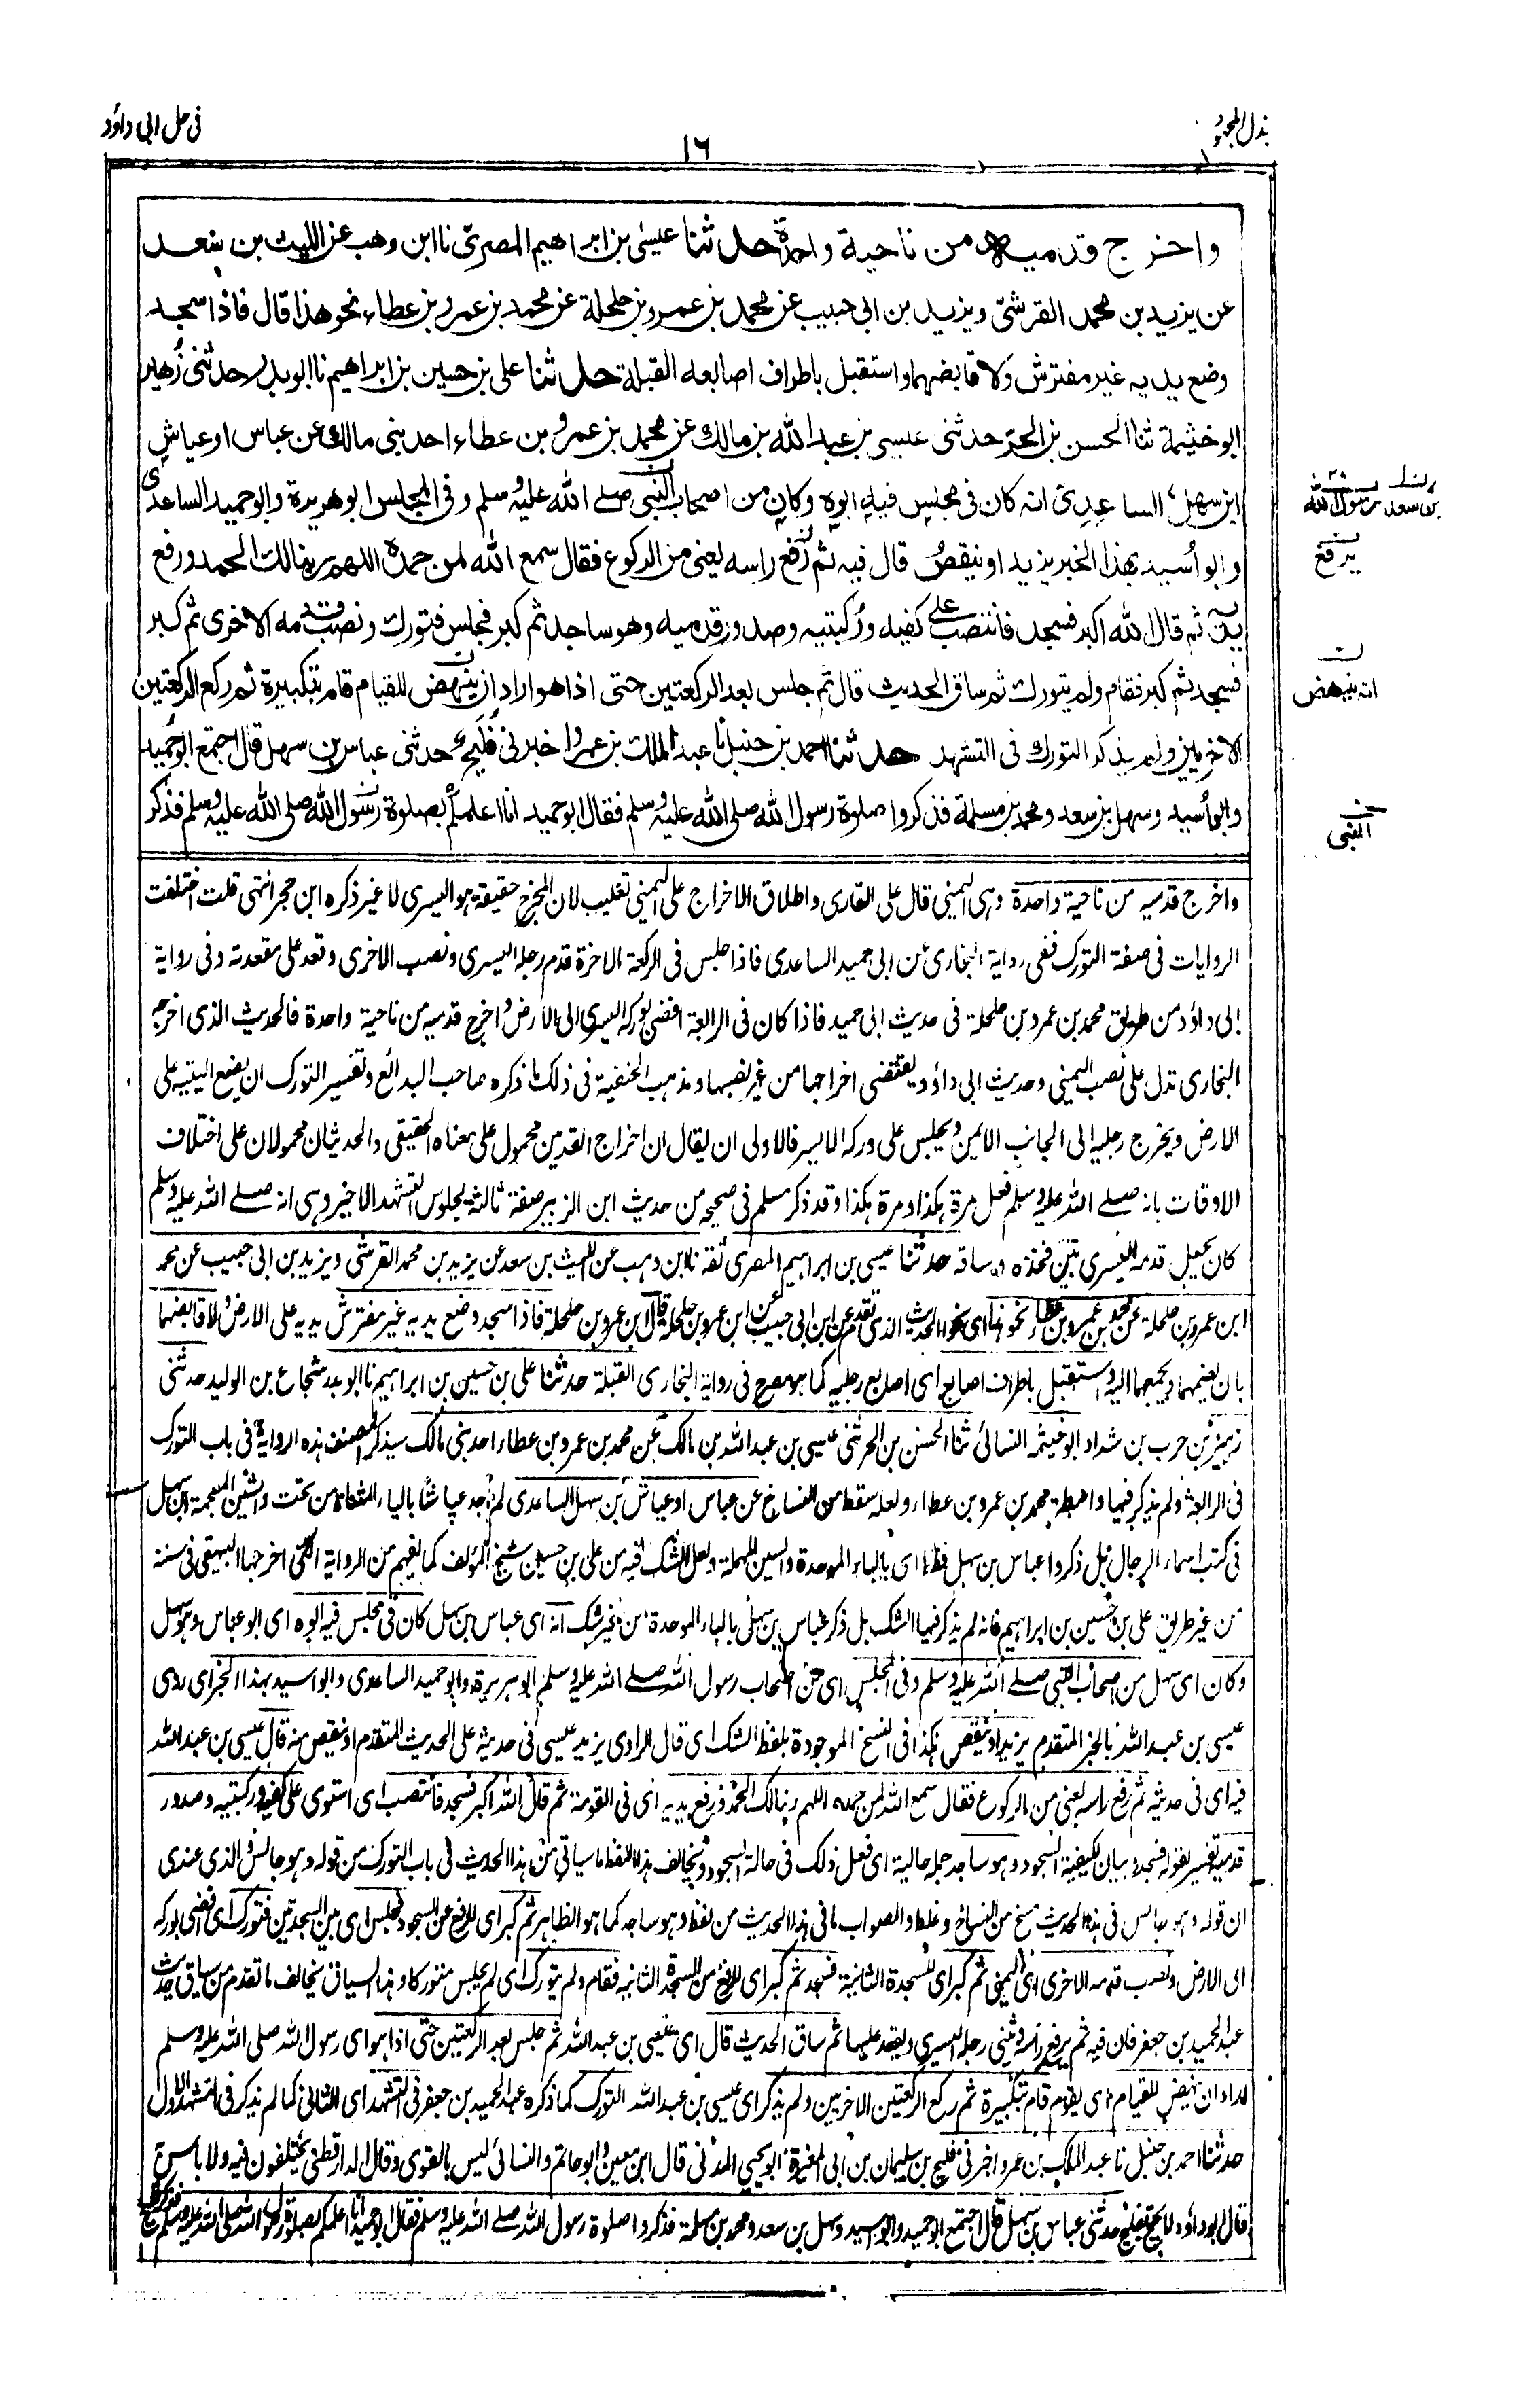 بذل المجهود
١٦
فى حل ابى داؤد
واخرج قدميه من ناحية واحدة حدثنا عيسى بن ابراهيم المصرى نا ابن وهب عن الليث بن سعد
عن يزيد بن محمد القرشى ويزيد بن ابى حبيب عن محمد بن عمرو بن حلحلة عن محمد بن عمرو بن عطاء نحو هذا قال فاذا سجد
وضع يديه غير مفترش ولا قابضهما واستقبل باطراف اصابعه القبلة حدثنا على بن حسين بن ابراهيم نا ابو بدر حدثنى زهير
ابو خيثمة ثنا الحسن بن الحر حدثنى عيسى بن عبد الله بن مالك عن محمد بن عمرو بن عطاء احد بنى مالك عن عباس او عياش
ابن سهل الساعدى انه كان فى مجلس فيه ابوه وكان من اصحاب النبى صلى الله عليه وسلم وفى المجلس ابو هريرة وابو حميد الساعدى
بن سعد رسول الله
وابو أسيد بهذا الخبر يزيد او ينقص قال فيه ثم رفع راسه يعنى من الركوع فقال سمع الله لمن حمده اللهم ربنا لك الحمد ورفع
يرفع
يديه ثم قال الله اكبر فسجد فانتصب على كفيه وركبتيه وصدور قدميه وهو ساجد ثم كبر فجلس فتورك ونصب قدمه الاخرى ثم كبر
فسجد ثم كبر فقام ولم يتورك ثم ساق الحديث قال ثم جلس بعد الركعتين حتى اذا هو اراد ان ينهض للقيام قام بتكبيرة ثم ركع الركعتين
انه ينهض
الاخريين ولم يذكر التورك فى التشهد حدثنا احمد بن حنبل نا عبد الملك بن عمرو اخبرنى فليح حدثنى عباس بن سهل قال اجتمع ابو حميد
وابو أسيد وسهل بن سعد ومحمد بن مسلمة فذكروا صلوة رسول الله صلى الله عليه وسلم فقال ابو حميد انا اعلمكم بصلوة رسول الله صلى الله عليه وسلم فذكر
النبى
واخرج قدميه من ناحية واحدة وهى اليمنى قال على القارى واطلاق الاخراج على اليمنى تغليب لان المخرج حقيقة هو اليسرى لا غير ذكره ابن حجر انتهى قلت اختلفت
الروايات فى صفة التورك ففى رواية البخارى عن ابى حميد الساعدى فاذا جلس فى الركعة الاخرة قدم رجله اليسرى ونصب الاخرى وقعد على مقعدته وفى رواية
ابى داؤد من طريق محمد بن عمرو بن حلحلة فى حديث ابى حميد فاذا كان فى الرابعة افضى بوركه اليسرى الى الارض واخرج قدميه من ناحية واحدة فالحديث الذى اخرجه
البخارى تدل على نصب اليمنى وحديث ابى داؤد يقتضى اخراجها من غير نصبها ومذهب الحنفية فى ذلك ما ذكره صاحب البدائع وتفسير التورك ان يضع اليتيه على
الارض ويخرج رجليه الى الجانب الايمن ويجلس على وركه الايسر فالاولى ان يقال ان اخراج القدمين محمول على معناه الحقيقى والحديثان محمولان على اختلاف
الاوقات بانه صلى الله عليه وسلم فعل مرة هكذا ومرة هكذا وقد ذكر مسلم فى صحيحه من حديث ابن الزبير صفة ثالثة لجلوس التشهد الاخير وهى انه صلى الله عليه وسلم
كان يجعل قدمه اليسرى بين فخذه وساقه حدثنا عيسى بن ابراهيم المصرى ثقة نا ابن وهب عن الليث بن سعد عن يزيد بن محمد القرشى ويزيد بن ابى حبيب عن محمد
ابن عمرو بن حلحلة عن محمد بن عمرو بن عطاء نحو هذا اى نحو الحديث الذى تقدم عن ابن ابى حبيب عن ابن عمرو بن حلحلة قال ابن عمرو بن حلحلة فاذا سجد وضع يديه غير مفترش يديه على الارض ولا قابضهما
بان يضمهما ويجمعهما اليه واستقبل باطراف اصابعه اى اصابع رجليه كما هو مصرح فى رواية البخارى القبلة حدثنا على بن حسين بن ابراهيم نا ابو بدر شجاع بن الوليد حدثنى
زهير بن حرب بن شداد ابو خيثمه النسائى ثنا الحسن بن الحر ثنى عيسى بن عبد الله بن مالك عن محمد بن عمرو بن عطاء احد بنى مالك سيذكر المصنف هذه الرواية فى باب التورك
فى الرابعة ولم يذكر فيها واسطة محمد بن عمرو بن عطاء ولعله سقط من النساخ عن عباس او عياش بن سهل الساعدى لم اجد عياشا بالياء المثناة من تحت والشين المعجمة ابن سهل
فى كتب اسماء الرجال بل ذكروا عباس بن سهل فقط اى بالباء الموحدة والسين المهملة ولعل الشك فيه من على بن حسين شيخ المؤلف كما يفهم من الرواية التى اخرجها البيهقى فى سننه
من غير طريق على بن حسين بن ابراهيم فانه لم يذكر فيها الشك بل ذكر عباس بن سهل بالباء الموحدة من غير شك انه اى عباس بن سهل كان فى مجلس فيه ابوه اى ابو عباس وهو سهل
وكان اى سهل من اصحاب النبى صلى الله عليه وسلم وفى المجلس اى من اصحاب رسول الله صلى الله عليه وسلم ابو هريرة وابو حميد الساعدى وابو اسيد بهذا الخبر اى روى
عيسى بن عبد الله بالخبر المتقدم يزيد او ينقص هكذا فى النسخ الموجودة بلفظ الشك اى قال الراوى يزيد عيسى فى حديثه على الحديث المتقدم او ينقص منه قال عيسى بن عبد الله
فيه اى فى حديثه ثم رفع راسه يعنى من الركوع فقال سمع الله لمن حمده اللهم ربنا لك الحمد ورفع يديه اى فى القومة ثم قال الله اكبر فسجد فانتصب اى استوى على كفيه وركبتيه وصدور
قدميه تفسير لقوله فسجد وبيان لكيفية السجود وهو ساجد جملة حالية اى فعل ذلك فى حالة السجود ويخالف هذا اللفظ ما سياتى من هذا الحديث فى باب التورك من قوله وهو جالس والذى عندى
ان قوله وهو جالس فى هذا الحديث مسخ من النساخ وغلط والصواب ما فى هذا الحديث من لفظ وهو ساجد كما هو الظاهر ثم كبر اى للرفع من السجود فجلس اى بين السجدتين فتورك اى افضى بوركه
الى الارض ونصب قدمه الاخرى اى اليمنى ثم كبر اى للسجدة الثانية فسجد ثم كبر اى للرفع من السجدة الثانية فقام ولم يتورك اى لم يجلس متوركا وهذا السياق يخالف ما تقدم من سياق حديث
عبد الحميد بن جعفر فان فيه ثم يرفع راسه ويثنى رجله اليسرى ويقعد عليها ثم ساق الحديث قال اى عيسى بن عبد الله ثم جلس بعد الركعتين حتى اذا هو اى رسول الله صلى الله عليه وسلم
اراد ان ينهض للقيام اى يقوم قام بتكبيرة ثم ركع الركعتين الاخريين ولم يذكر اى عيسى بن عبد الله التورك كما ذكره عبد الحميد بن جعفر فى التشهد اى الثانى كما لم يذكر فى التشهد الاول
حدثنا احمد بن حنبل نا عبد الملك بن عمرو اخبرنى فليح بن سليمان بن ابى المغيرة ابو يحيى المدنى قال ابن معين وابو حاتم والنسائى ليس بالقوى وقال الدارقطنى يختلفون فيه ولا باس به
قال ابو داؤد لا يحتج بفليح حدثنى عباس بن سهل قال اجتمع ابو حميد وابو اسيد وسهل بن سعد ومحمد بن مسلمة فذكروا صلوة رسول الله صلى الله عليه وسلم فقال ابو حميد انا اعلمكم بصلوة رسول الله صلى الله عليه وسلم